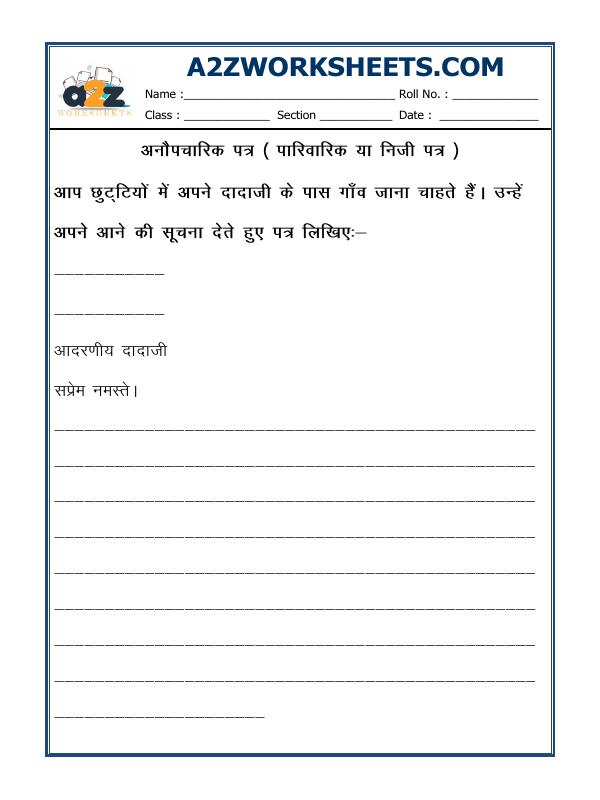 A2ZWORKSHEETS.COM
a2z
WORKSHEETS
Name :______________________________ Roll No. : ____________
Class : ____________ Section __________ Date : ______________
अनौपचारिक पत्र ( पारिवारिक या निजी पत्र )
आप छुट्टियों में अपने दादाजी के पास गाँव जाना चाहते हैं। उन्हें
अपने आने की सूचना देते हुए पत्र लिखिए:–
___________
___________
आदरणीय दादाजी
सप्रेम नमस्ते।
________________________________________________
________________________________________________
________________________________________________
________________________________________________
________________________________________________
________________________________________________
________________________________________________
________________________________________________
_____________________